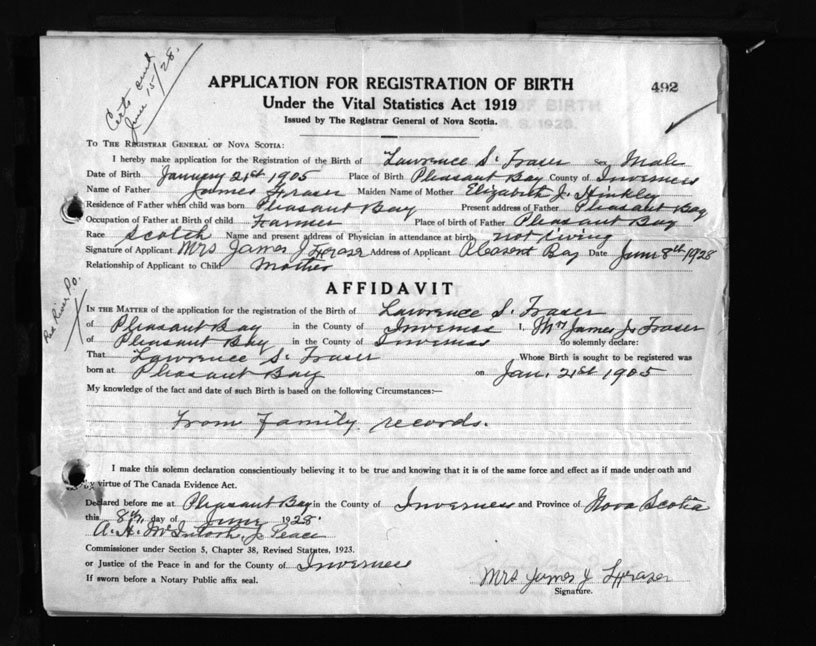 Certs out
June 15/28.
APPLICATION FOR REGISTRATION OF BIRTH
492
Under the Vital Statistics Act 1919
Issued by The Registrar General of Nova Scotia.
TO THE REGISTRAR GENERAL OF NOVA SCOTIA:
I hereby make application for the Registration of the Birth of Lawrence S. Fraser Sex Male
Date of Birth January 21st 1905 Place of Birth Pleasant Bay County of Inverness
Name of Father James Fraser Maiden Name of Mother Elizabeth J. Hinkley
Residence of Father when child was born Pleasant Bay Present address of Father Pleasant Bay
Occupation of Father at Birth of child Farmer Place of birth of Father Pleasant Bay
Race Scotch Name and present address of Physician in attendance at birth, not living
Signature of Applicant Mrs James J Fraser Address of Applicant Pleasent Bay Date June 8th 1928
Relationship of Applicant to Child Mother
Red River P.O.
AFFIDAVIT
IN THE MATTER of the application for the registration of the Birth of Lawrence S. Fraser
of Pleasant Bay in the County of Inverness I, Mrs James J. Fraser
of Pleasant Bay in the County of Inverness do solemnly declare:
That Lawrence S. Fraser Whose Birth is sought to be registered was
born at Pleasant Bay on Jan. 21st 1905
My knowledge of the fact and date of such Birth is based on the following Circumstances:—
From Family records.
I make this solemn declaration conscientiously believing it to be true and knowing that it is of the same force and effect as if made under oath and
by virtue of The Canada Evidence Act.
Declared before me at Pleasant Bay in the County of Inverness and Province of Nova Scotia
this 8th day of June 1928.
A. H. McIntosh J. Peace
Commissioner under Section 5, Chapter 38, Revised Statutes, 1923.
or Justice of the Peace in and for the County of Inverness
If sworn before a Notary Public affix seal.
Mrs James J Fraser
Signature.